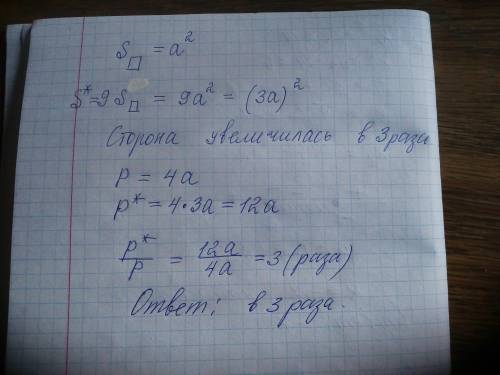 S□ = a²
S* = 9 S□ = 9a² = (3a)²
Сторона увеличилась в 3 раза
P = 4a
P* = 4·3a = 12a
P*/P = 12a/4a = 3 (раза)
Ответ: в 3 раза.